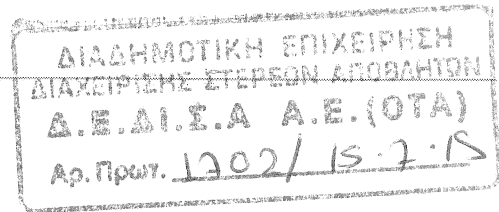 ΔΙΑΔΗΜΟΤΙΚΗ ΕΠΙΧΕΙΡΗΣΗ
ΔΙΑΧΕΙΡΙΣΗΣ ΣΤΕΡΕΩΝ ΑΠΟΒΛΗΤΩΝ
Δ.Ε.ΔΙ.Σ.Α Α.Ε.(ΟΤΑ)
Αρ. Πρωτ. 1702/15.7.15